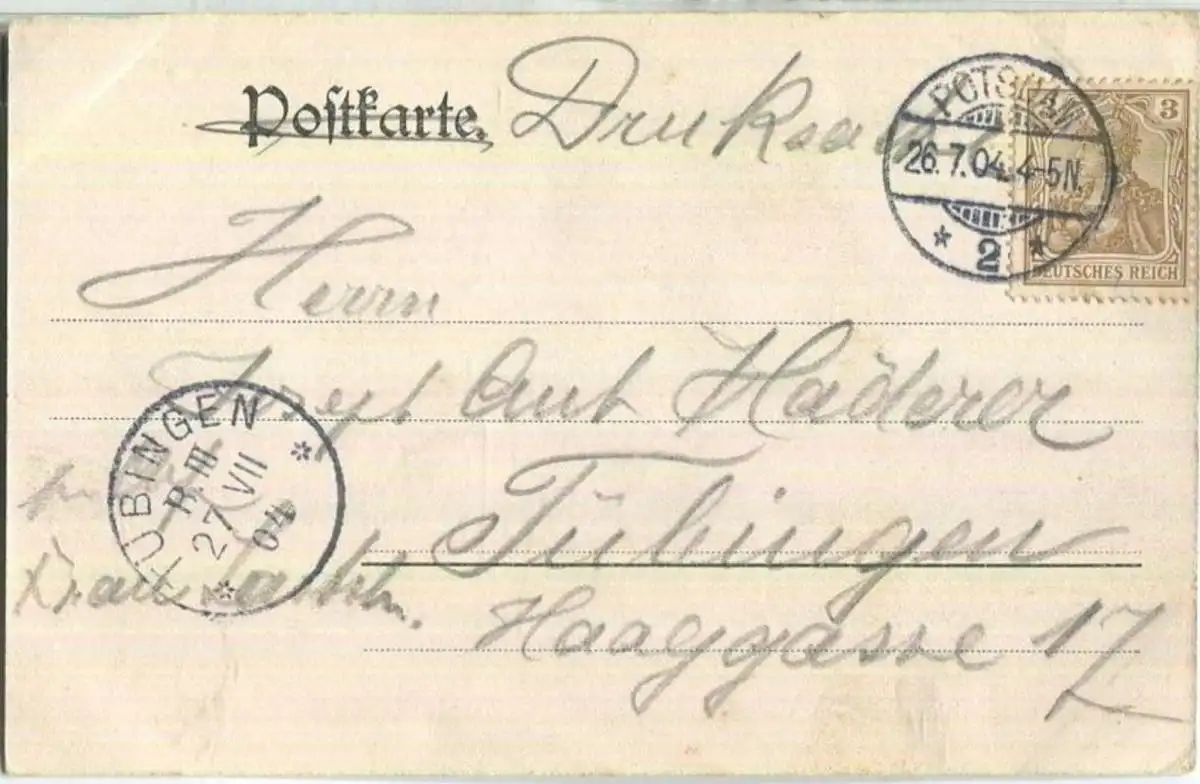 Postkarte. Drucksache
POTSDAM
26.7.04. 4-5N.
* 2 *
3
DEUTSCHES REICH
Herrn
Josef Ant Häderer
TÜBINGEN
P. III
27 VII
04
Tübingen
Haaggasse 17